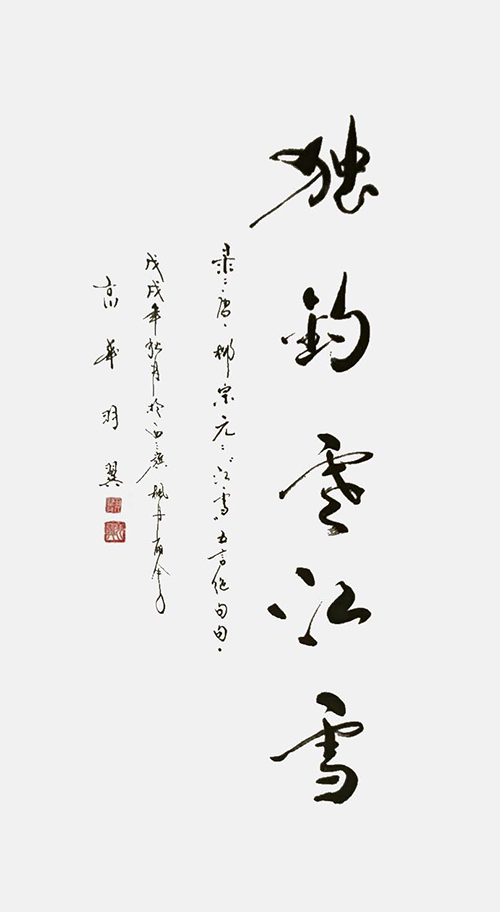 独钓寒江雪
录唐柳宗元“江雪”五言绝句句
戊戌年秋月于西
高华羽翼